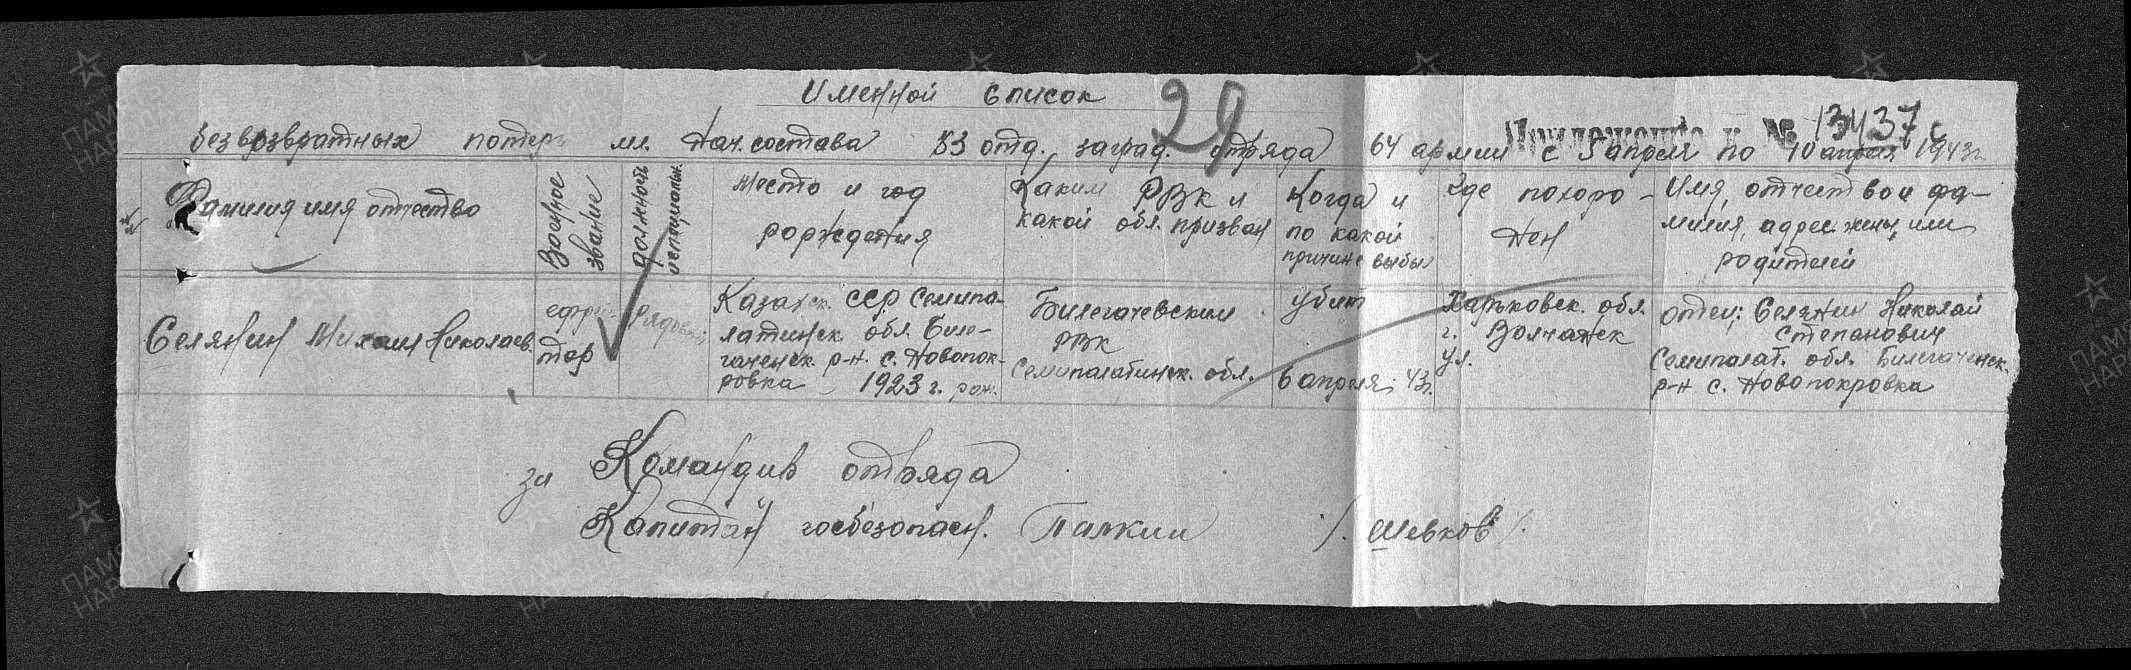 Именной список
29
Приложение к № 13437с
безвозвратных потерь мл. нач. состава 83 отд. заград. отряда 64 армии с 5 апреля по 10 апреля 1943 г.
Фамилия имя отчество
Военное звание
Должность и специальн.
Место и год рождения
Каким РВК и какой обл. призван
Когда и по какой причине выбыл
Где похоро-
нен
Имя, отчество и фа-
милия, адрес жены, или
родителей
Селянин Михаил Николаев.
ефрей-
тор
Рядовой
Казахск. ССР Семипа-
латинск. обл. Биле-
гаченск. р-н. с. Новопок-
ровка 1923 г. рож.
Билегачевским
РВК
Семипалатинск. обл.
Убит
6 апреля 43г.
Харьковск. обл.
г. Волчанск
ул.
отец: Селянин Николай
Степанович
Семипалат. обл. Билегаченск.
р-н с. Новопокровка
за Командир отряда
Капитан госбезопасн. /Шевков/
ПАМЯТЬ НАРОДА